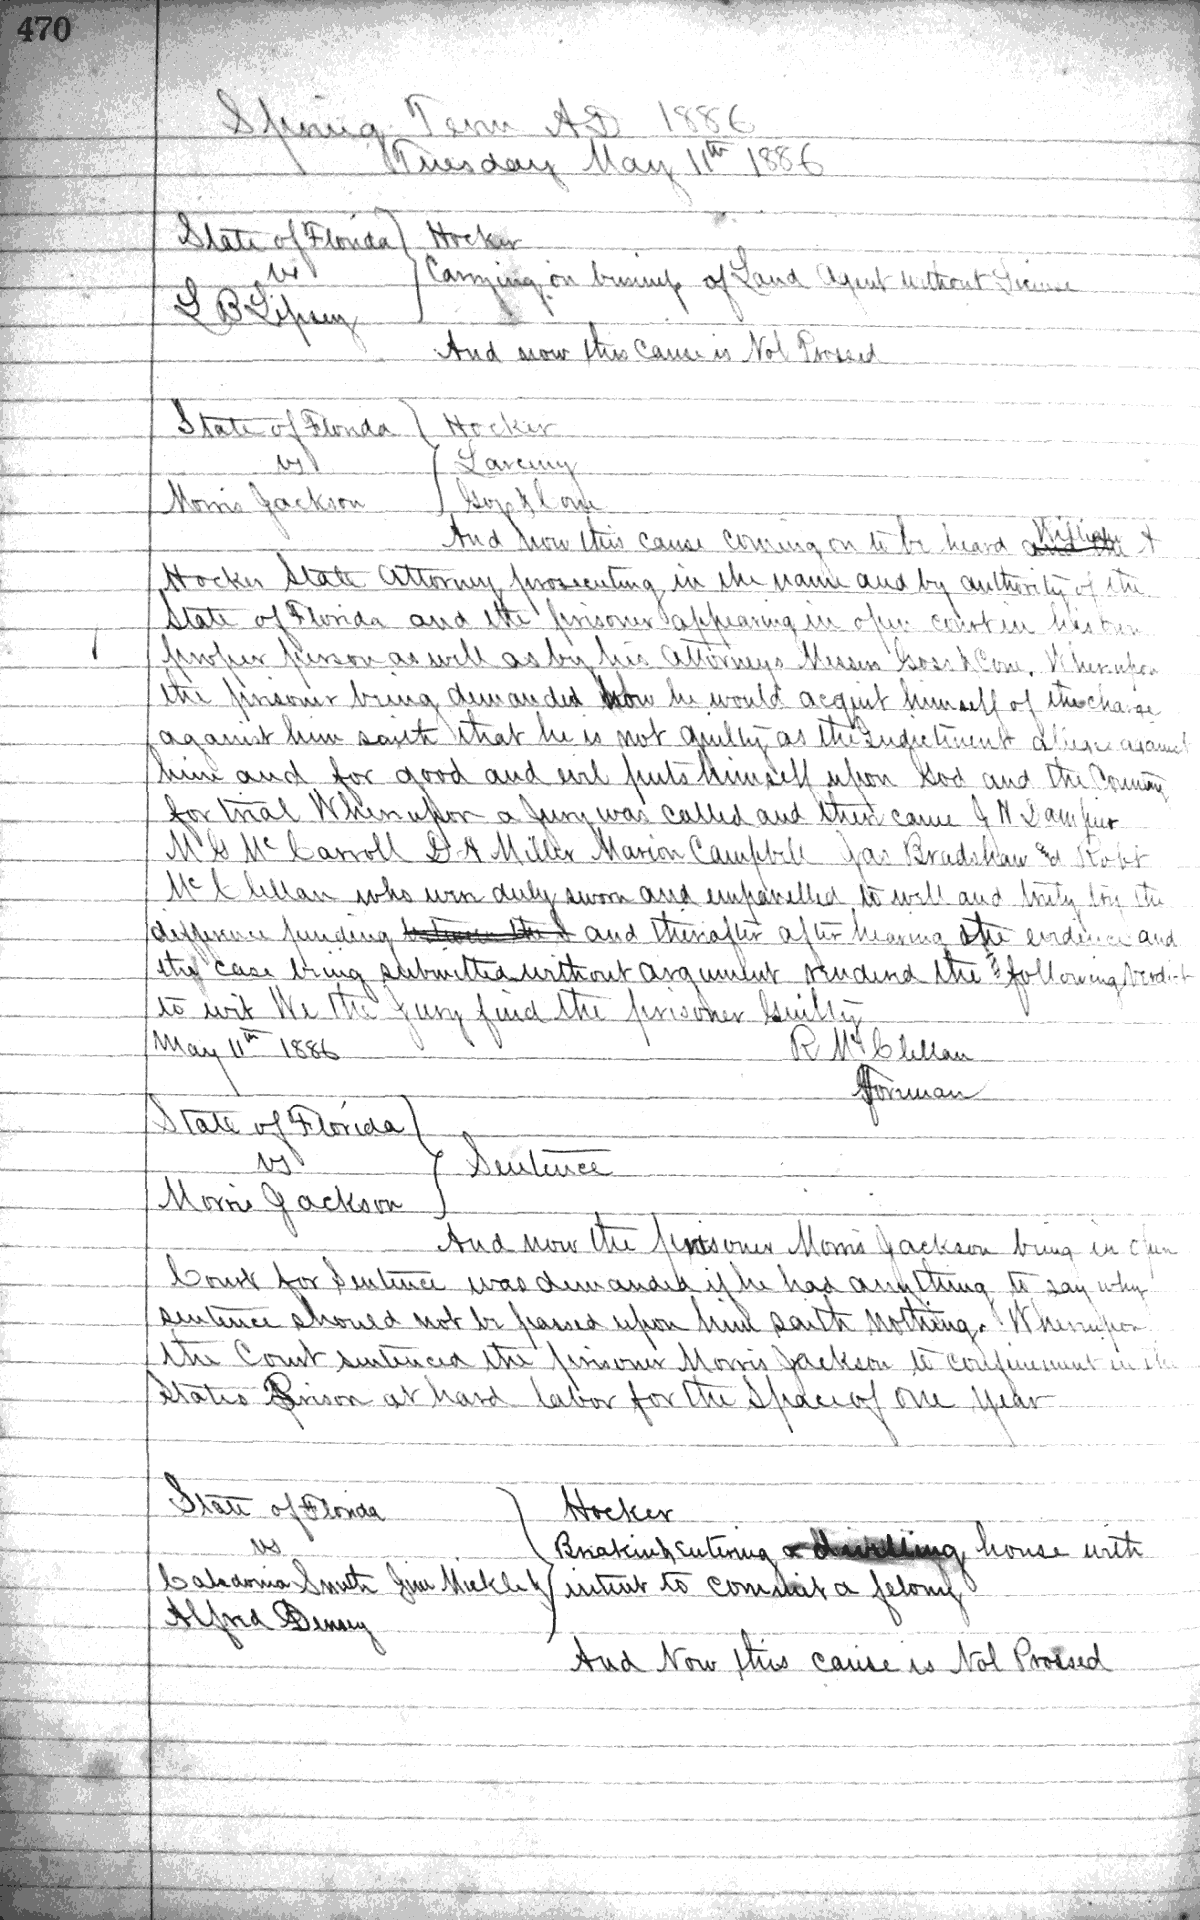 470
Spring Term AD 1886
Tuesday May 11th 1886
State of Florida } Hocker
vs } Carrying on business of Land Agent without License
L B Lipsey
And now this cause is Nol Prossed
State of Florida } Hocker
vs } Larceny
Morris Jackson } Goss & Cone
And now this cause coming on to be heard and the William A
Hocker State Attorney prosecuting in the name and by authority of the
State of Florida and the prisoner appearing in open court in his own
proper person as well as by his attorneys Messrs Goss & Cone. Whereupon
the prisoner being demanded how he would acquit himself of the charge
against him saith that he is not guilty as the Indictment alleges against
him and for good and evil puts himself upon God and the Country
for trial Whereupon a jury was called and then came J N Dampier
M G McCarroll D A Miller Marion Campbell Jas Bradshaw and Robt
McClellan who were duly sworn and empanelled to well and truly try the
difference pending between the and thereafter after hearing the evidence and
the case being submitted without argument rendered the following verdict
to wit We the Jury find the prisoner Guilty
May 11th 1886 R McClellan
Foreman
State of Florida }
vs } Sentence
Morris Jackson
And now the prisoner Morris Jackson being in open
Court for sentence was demanded if he had anything to say why
sentence should not be passed upon him saith nothing. Whereupon
the Court sentenced the prisoner Morris Jackson to confinement in the
States Prison at hard labor for the space of one year
State of Florida } Hocker
vs } Breaking & entering a dwelling house with
Caledonia Smith Jim Mickle & } intent to commit a felony
Alfred Denny
And Now this cause is Nol Prossed